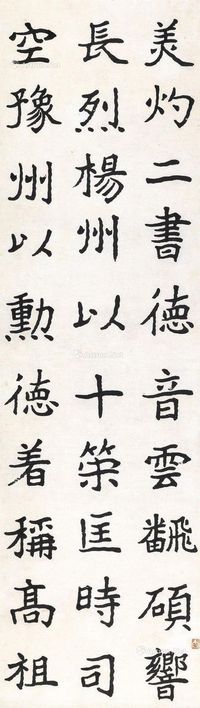 美灼二書徳音雲飜碩響
長烈楊州以十策匡時司
空豫州以勲徳着稱髙祖